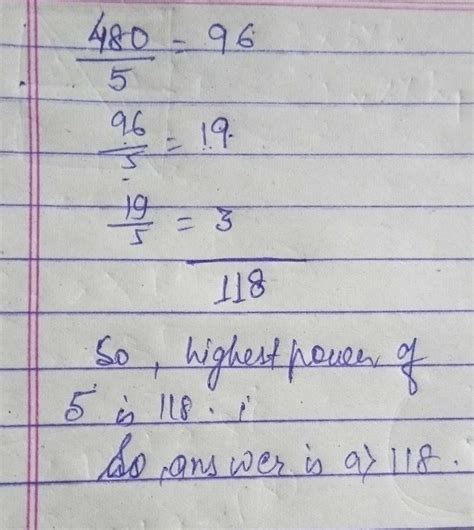 480/5 = 96
96/5 = 19.
19/5 = 3
118
So, highest power of
5 is 118. i
So, answer is a> 118.